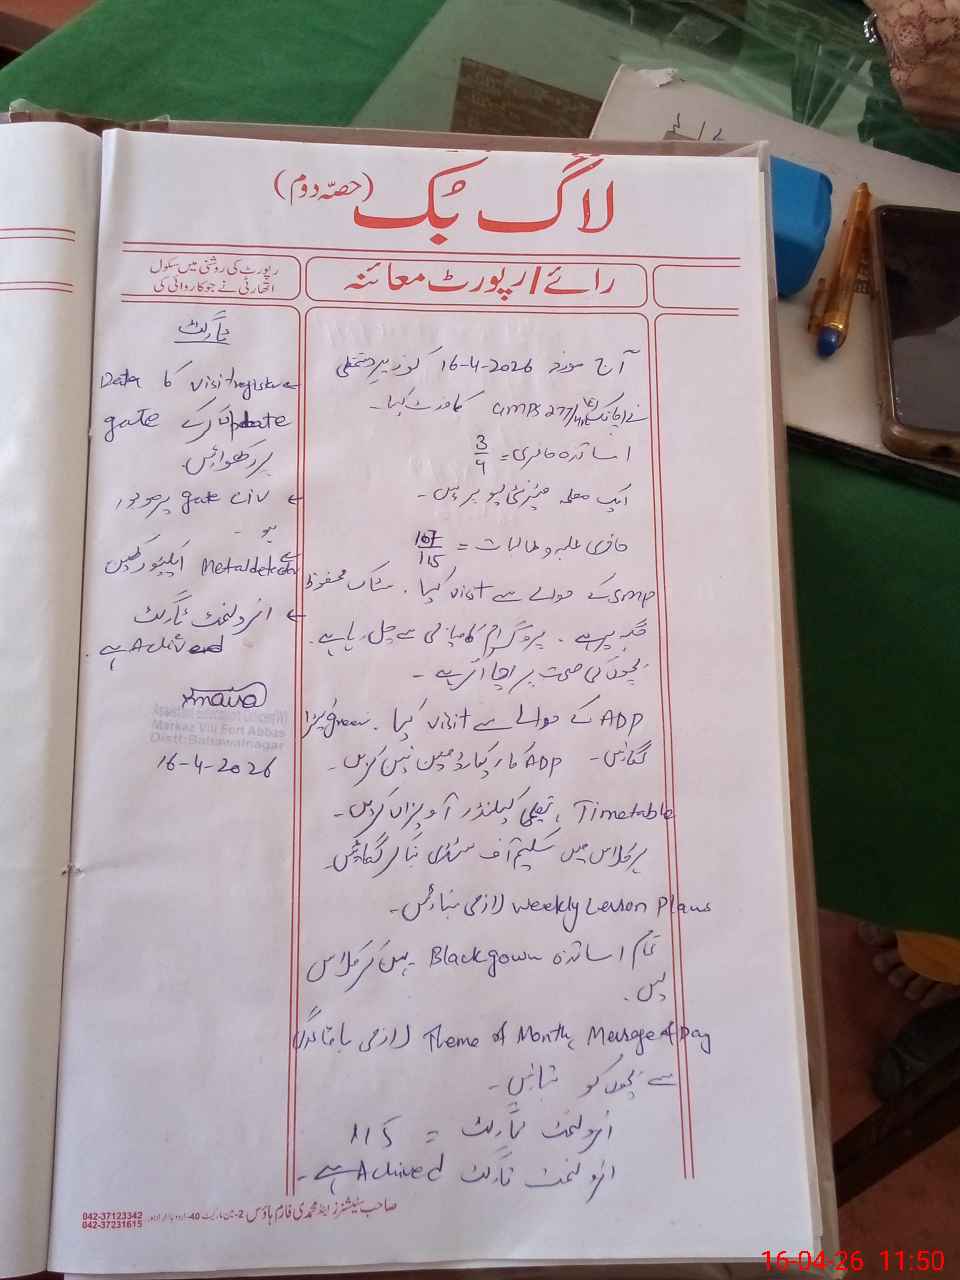 لاگ بُک (حصّہ دوم)
رائے / رپورٹ معائنہ
رپورٹ کی روشنی میں سکول
اتھارٹی نے جو کاروائی کی
آج مورخہ 16-4-2026 کو زیر دستخطی
نے اچانک GMPS 277/ کا وزٹ کیا۔
اساتذہ حاضری = 3/4
ایک معلمہ میٹرنٹی لیو پر ہیں۔
حاضری طلبہ و طالبات = 107/115
SMP کے حوالے سے visit کیا۔ سٹاک محفوظ
جگہ پر ہے۔ پروگرام کامیابی سے چل رہا ہے۔
بچوں کی صحت پر اچھا اثر ہے۔
ADP کے حوالے سے visit کیا۔ green
لگائیں۔ ADP کا ریکارڈ مین ٹین کریں۔
Timetable، تعلیمی کیلنڈر آویزاں کریں۔
ہر کلاس میں سکیم آف سٹڈی بنا کر لگائیں۔
Weekly Lesson Plans لازمی بنائیں۔
تمام اساتذہ Black gown پہن کر کلاس
لیں۔
Theme of Month, Message of Day لازمی باقاعدگی
سے بچوں کو بتائیں۔
انرولمنٹ ٹارگٹ = 115
انرولمنٹ ٹارگٹ Achived ہے۔
ٹارگٹ
visit register کا Data
Update کرکے gate
پر رکھوائیں۔
CIV gate پر موجود
ہو۔
Metal detector اپلیو رکھیں
انرولمنٹ ٹارگٹ
Achived ہے۔
Markaz Viii Fort Abbas
Distt: Bahawalnagar
16-4-2026
صاحب سٹیشنرز اینڈ محمدی فارم ہاؤس 2-مین مارکیٹ 40-اردو بازار لاہور
042-37123342
042-37231615
16-04-26 11:50